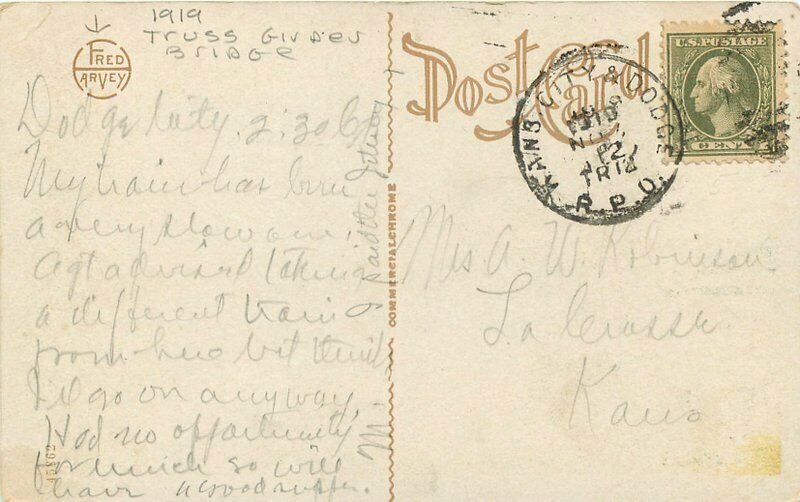 1919
Truss Girder
Bridge
FRED
HARVEY
Post Card
U.S. POSTAGE
CENT
KANS CITY & DODGE
1919
TR 12
R.P.O.
Dodge City, 2:30
My train has been
a very slow one,
Agt advised taking
a different train
from here but think
I'll go on anyway.
Had no opportunity
for much so will
have a good supper.
M.
COMMERCIALCHROME
Mrs A. W. Robinson
La Crosse
Kans